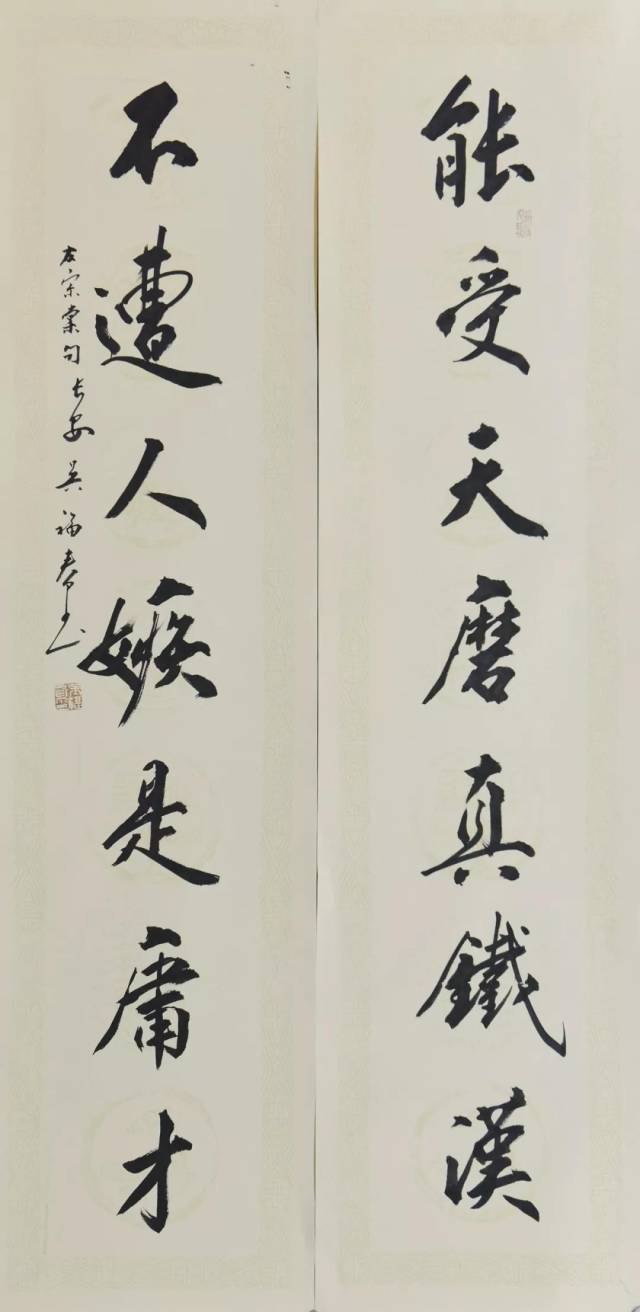 能受天磨真鐵漢
不遭人嫉是庸才
左宗棠句长安吴福春书